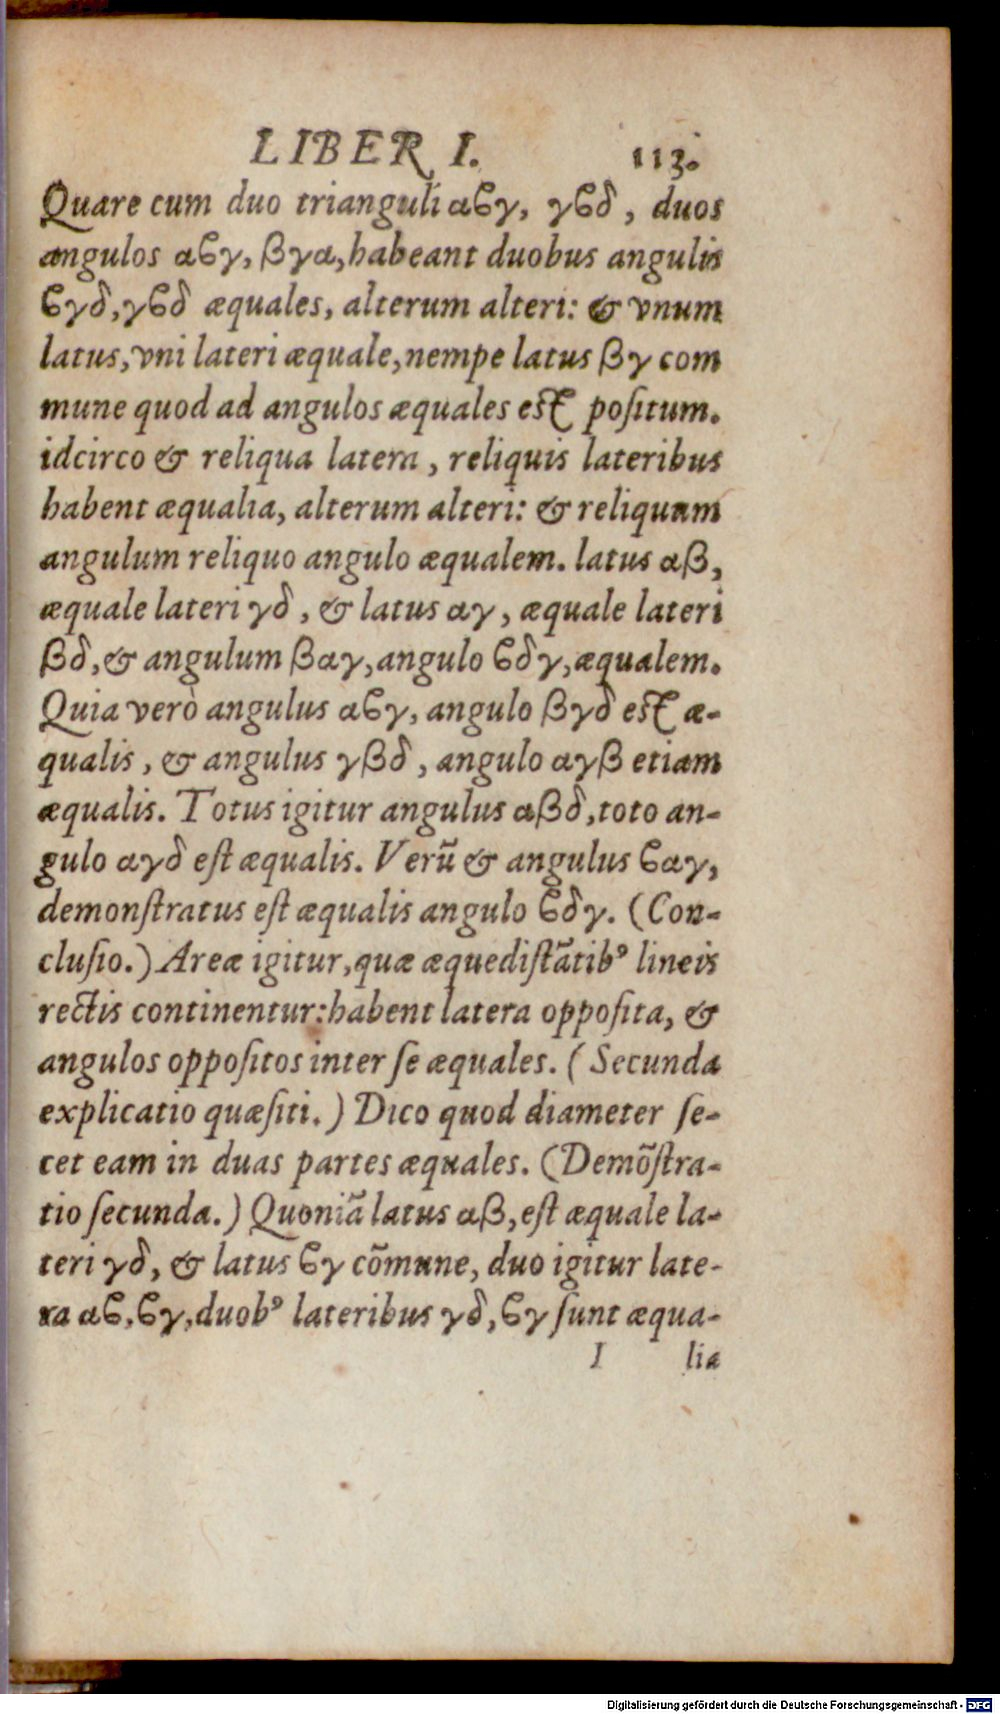 LIBER I. 113.
Quare cum duo trianguli αϐγ, γϐδ, duos
angulos αϐγ, βγα, habeant duobus angulis
ϐγδ, γϐδ æquales, alterum alteri: & vnum
latus, vni lateri æquale, nempe latus βγ com
mune quod ad angulos æquales est positum.
idcirco & reliqua latera, reliquis lateribus
habent æqualia, alterum alteri: & reliquum
angulum reliquo angulo æqualem. latus αβ,
æquale lateri γδ, & latus αγ, æquale lateri
βδ, & angulum βαγ, angulo ϐδγ, æqualem.
Quia verò angulus αϐγ, angulo βγδ est æ-
qualis, & angulus γβδ, angulo αγβ etiam
æqualis. Totus igitur angulus αβδ, toto an-
gulo αγδ eſt æqualis. Verũ & angulus ϐαγ,
demonſtratus eſt æqualis angulo ϐδγ. (Con-
cluſio.) Areæ igitur, quæ æquediſtãtibꝰ lineis
rectis continentur: habent latera oppoſita, &
angulos oppoſitos inter ſe æquales. (Secunda
explicatio quæſiti.) Dico quod diameter ſe-
cet eam in duas partes æquales. (Demõſtra-
tio ſecunda.) Quoniã latus αβ, eſt æquale la-
teri γδ, & latus ϐγ cõmune, duo igitur late-
ra αϐ, ϐγ, duobꝰ lateribus γδ, ϐγ ſunt æqua-
I lia
Digitalisierung gefördert durch die Deutsche Forschungsgemeinschaft - DFG